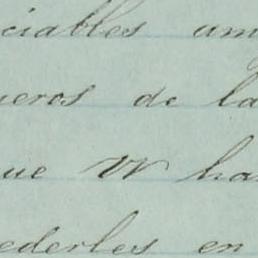 ciables am
ueros de la
ue W ha
ederles en